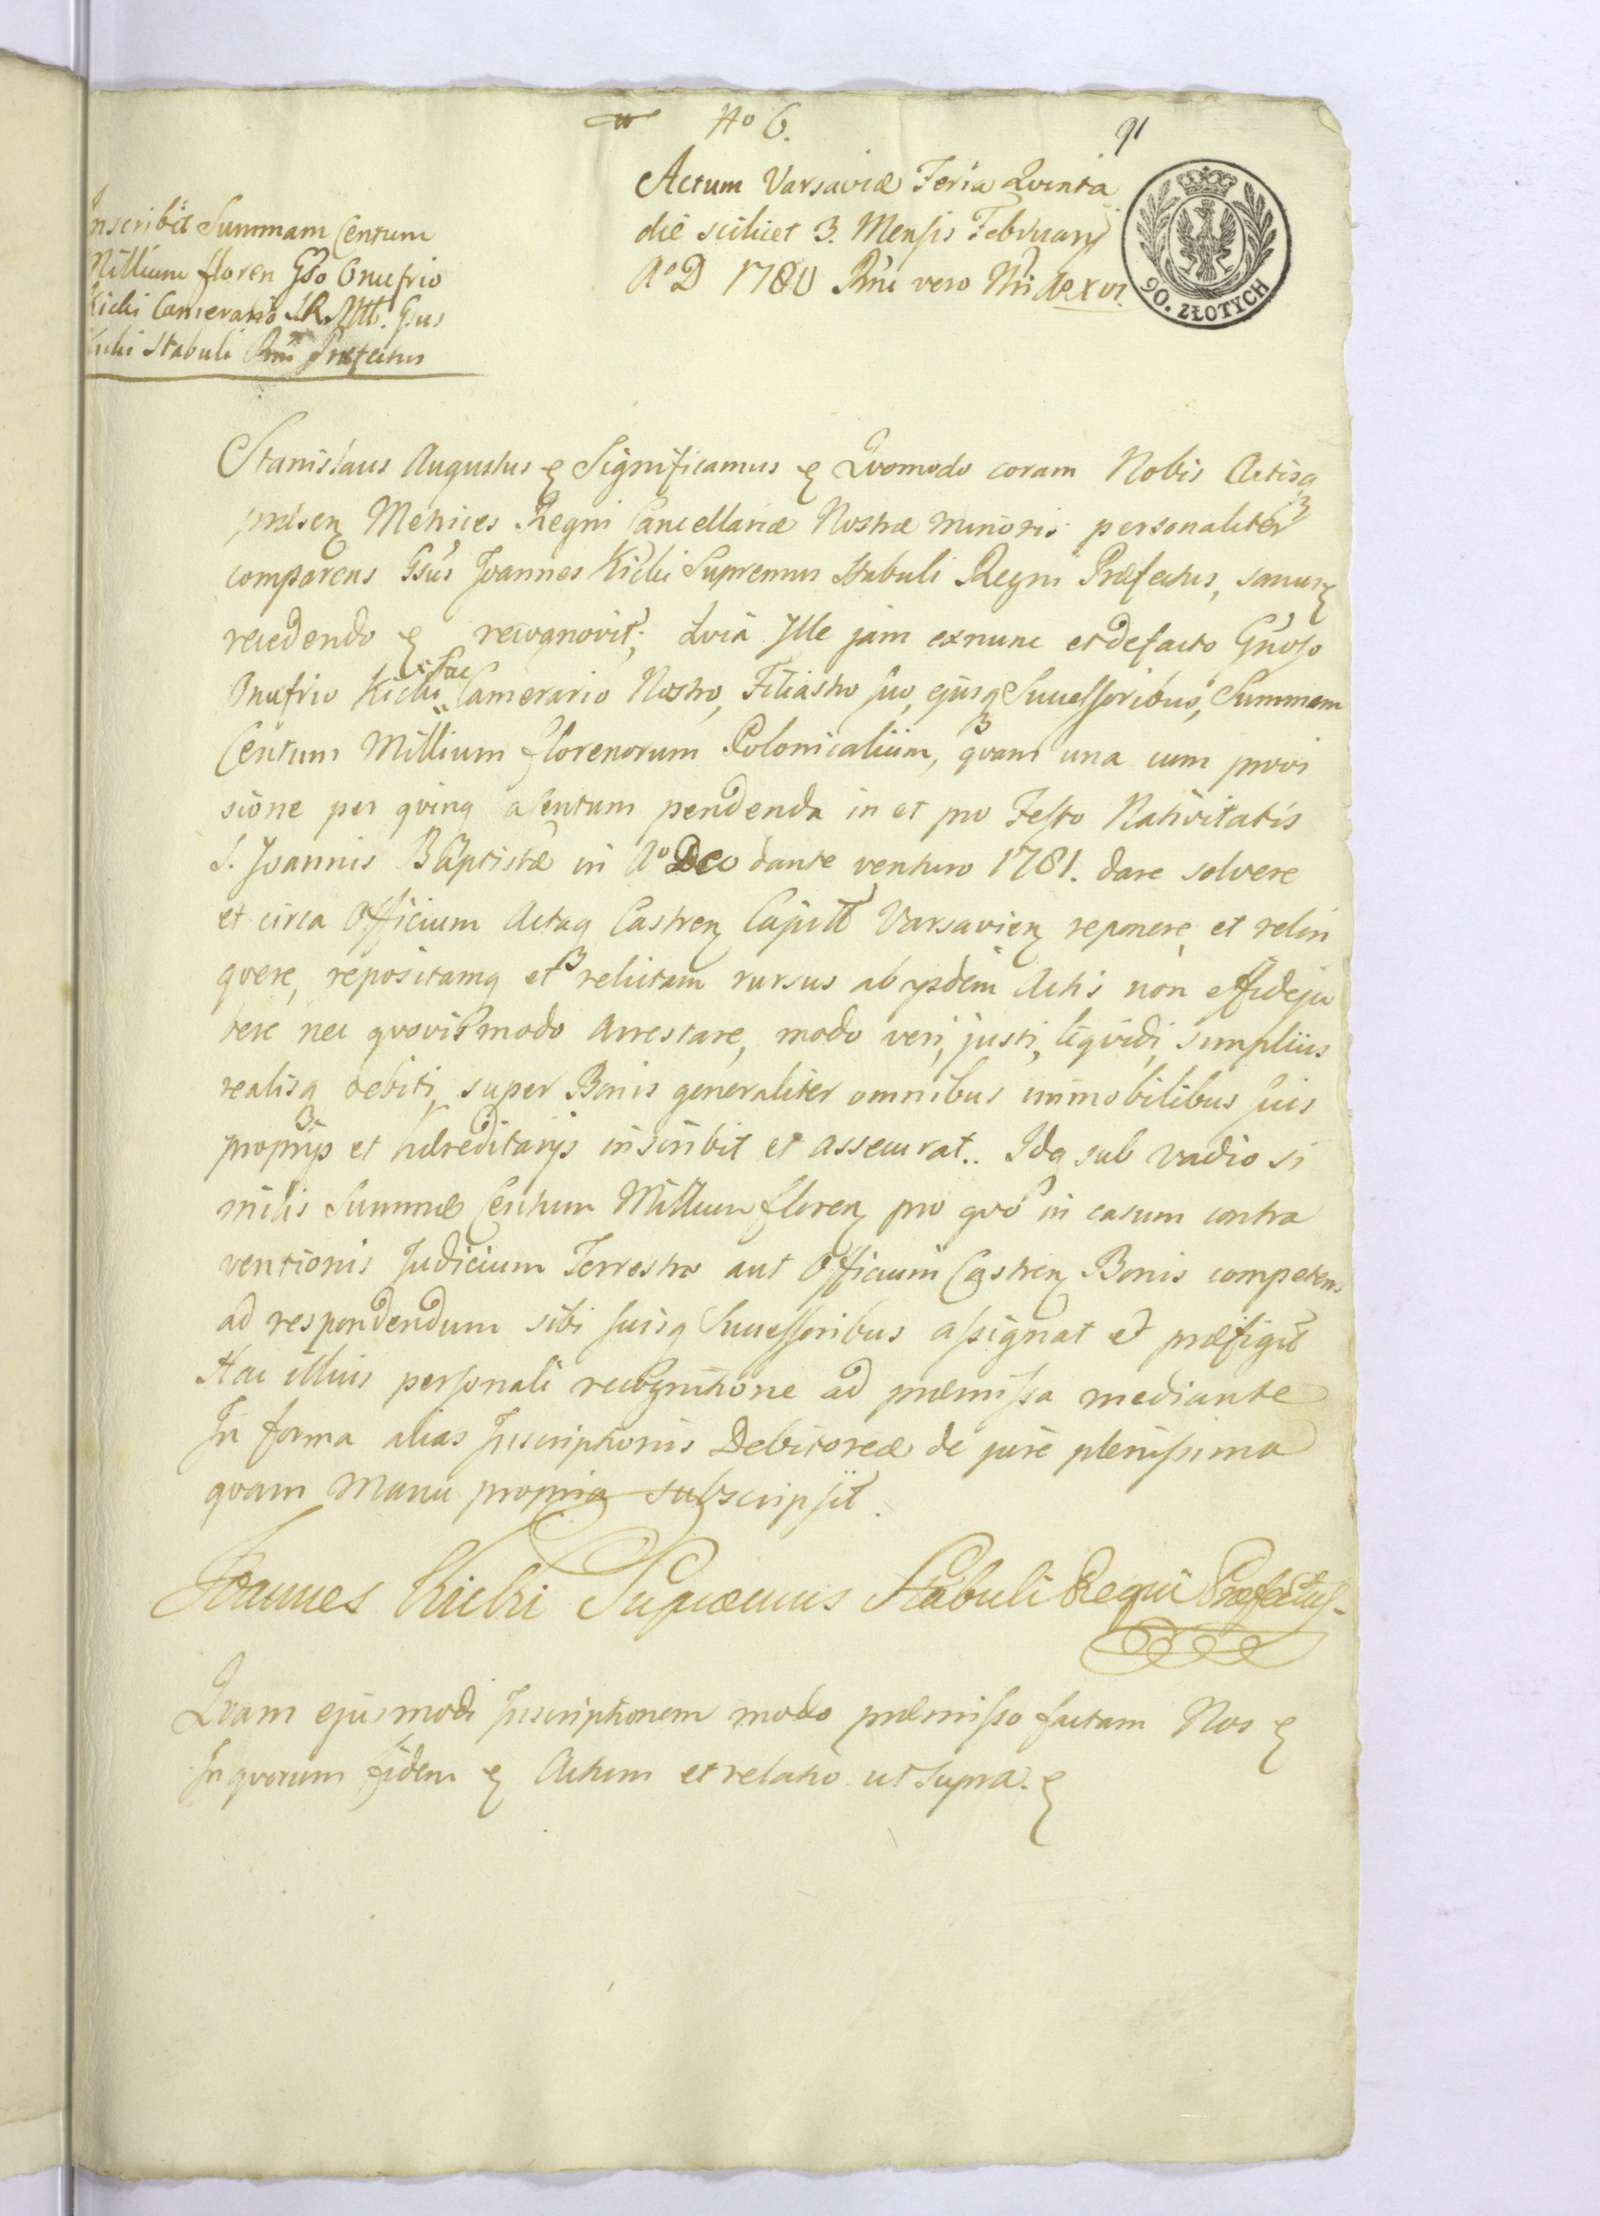 No 6.
91
Actum Varsaviæ Feria Qvinta
die scilicet 3. Mensis Februarij
Ao D 1780 Rni vero Nri Ao XVI.
90. ZŁOTYCH
Inscribit Summam Centum
Millium floren Gso Onufrio
Kicki Camerario SRMtt. Gsus
Kicki Stabuli Rni Præfectus
Stanislaus Augustus & Significamus & Qvomodo coram Nobis Actisq
præsen Metrices Regni Cancellariæ Nostræ minoris personaliter
comparens Gsus Joannes Kicki Supremus Stabuli Regni Præfectus, sanus
recedendo & recognovit; Qvia Ille jam exnunc et defacto Gnoso
Onufrio Kicki Camerario Nostro, Filiastro suo, ejusq Successoribus, Summam
Centum Millium florenorum Polonicalium, qvam una cum provi
sione per qvinq a Centum pendenda in et pro Festo Nativitatis
S. Joannis Baptistæ in Ao Deo dante venturo 1781. dare solvere
et circa Officium Actaq Castren Capitt Varsavien reponere et relin
qvere, repositamq et relictam rursus ab ijsdem Actis non effideju
bere nec qvovismodo arrestare, modo veri, justi, liqvidi, simplicis
realisq debiti super Bonis generaliter omnibus immobilibus suis
proprijs et hæreditarijs inscribit et assecurat.. Idq sub vadio si
milis Summæ Centum Millium floren pro qvo in casum contra
ventionis Judicium Terrestre aut Officium Castren Bonis competens
ad respondendum sibi suisq Successoribus assignat et præfigit
Hac illius personali recognitione ad præmissa mediante
In forma alias Inscriptionis Debitoreæ de jure plenissima
qvam Manu propria subscripsit.
Joannes Kicki Supræmus Stabuli Regni Præfectus
Qvam ejusmodi Inscriptionem modo præmisso factam Nos &
In qvorum fidem & Actum et relatio ut supra. &